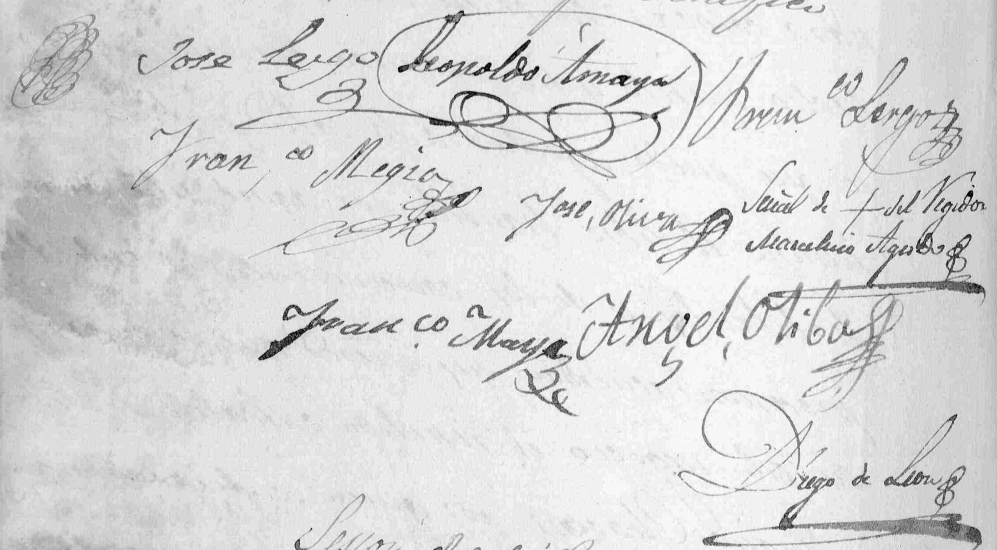 Jose Largo Leopoldo Amaya Fran co Largo
Fran, co Megia
Jose, Oliva Señal de + del Regidor
Marcelino Agudo
Franco Maya Angel, Oliba
Diego de Leon
Sesion